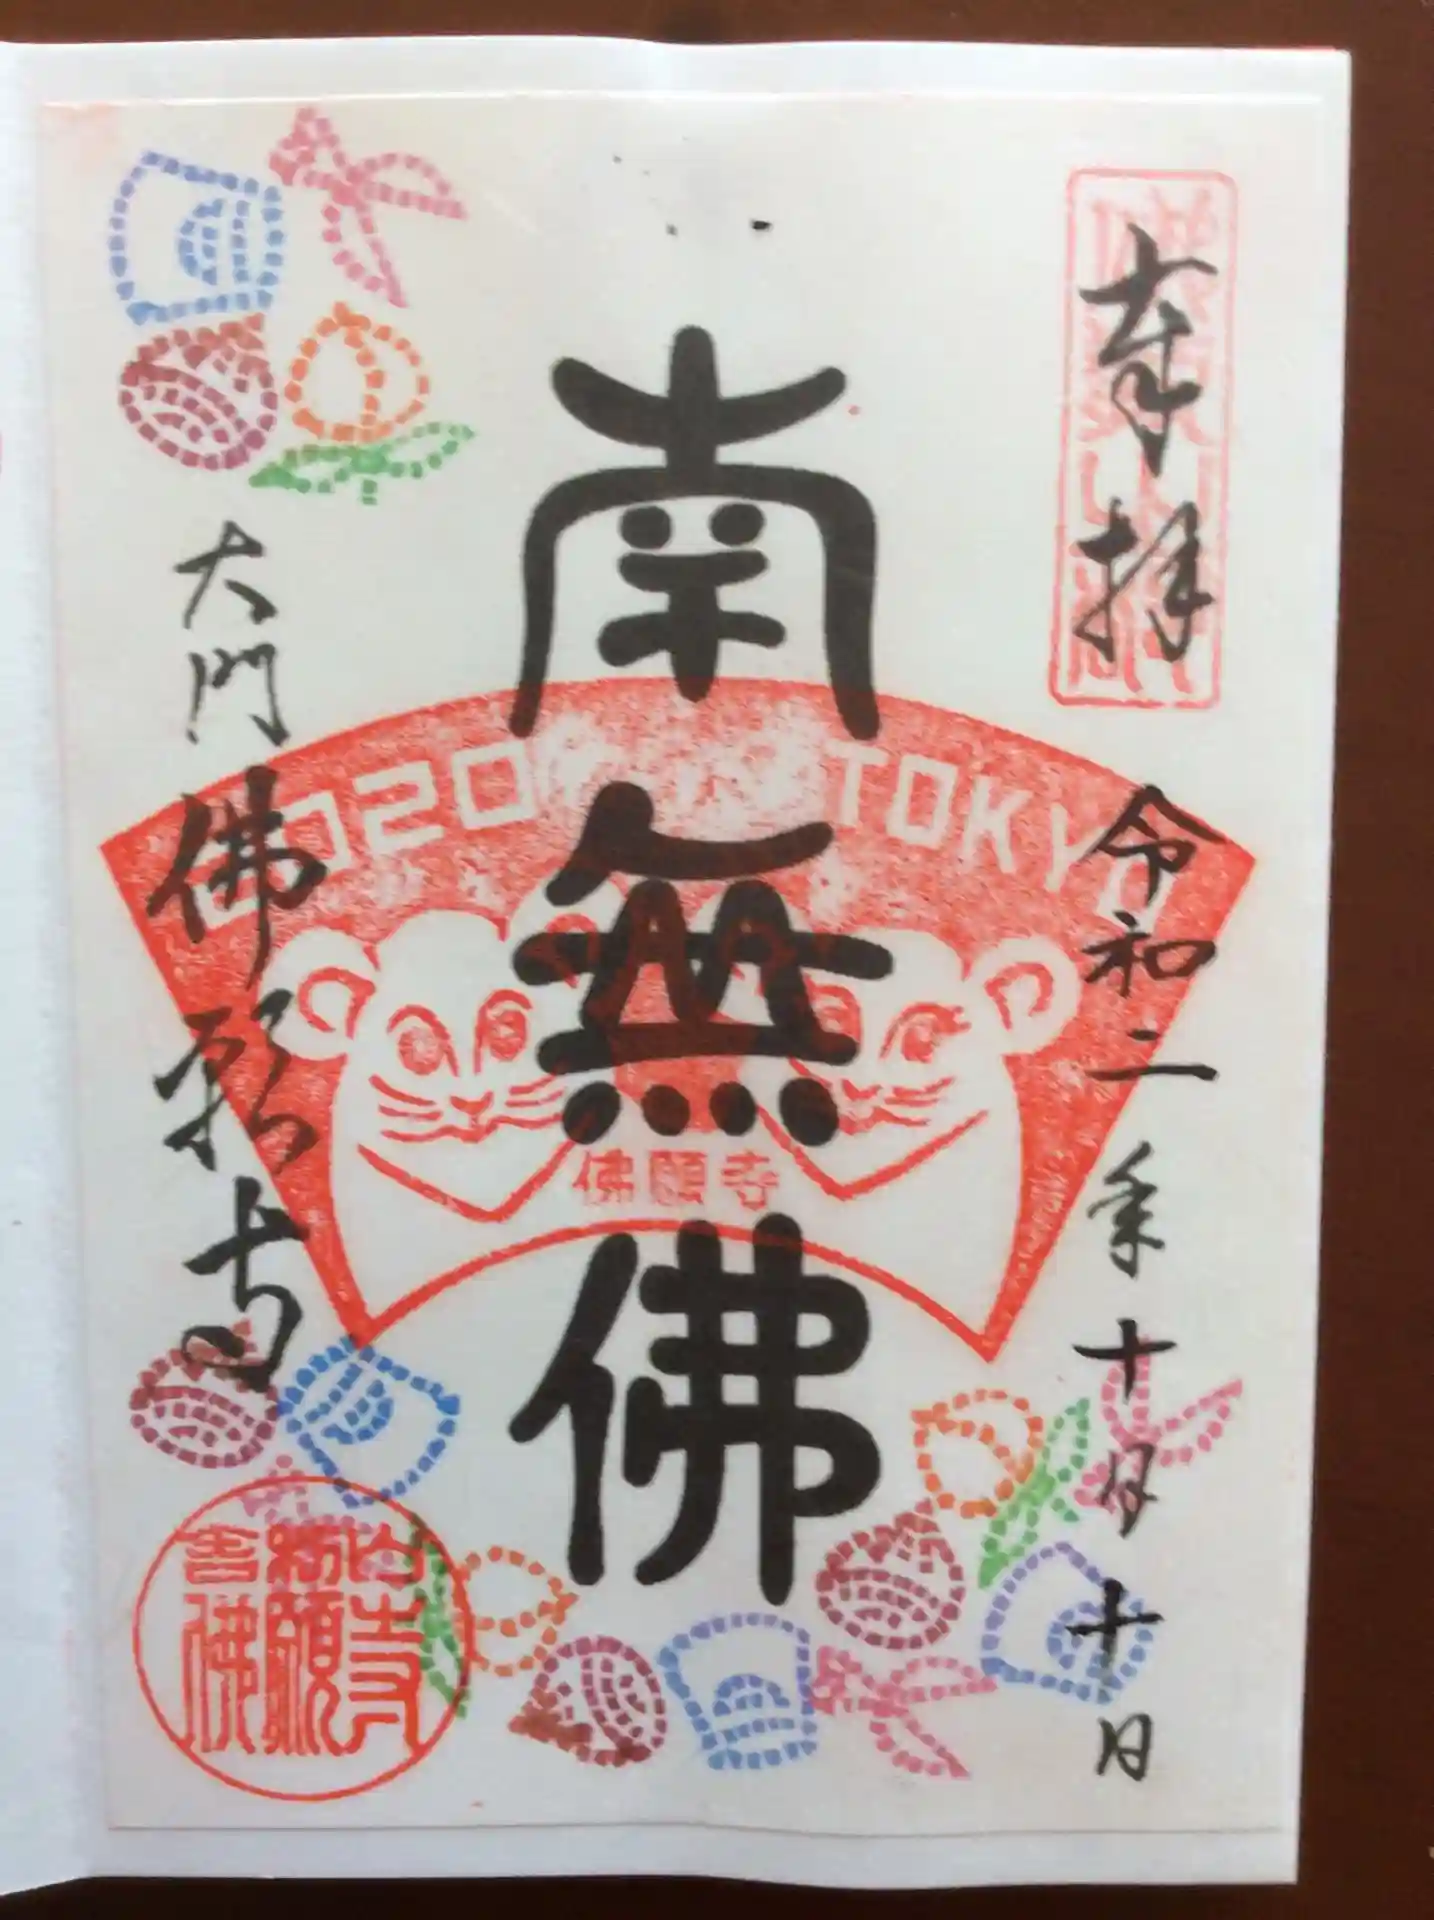 奉拝
令和二年十月十日
南無佛
2020 TOKYO
佛願寺
大門
佛願寺